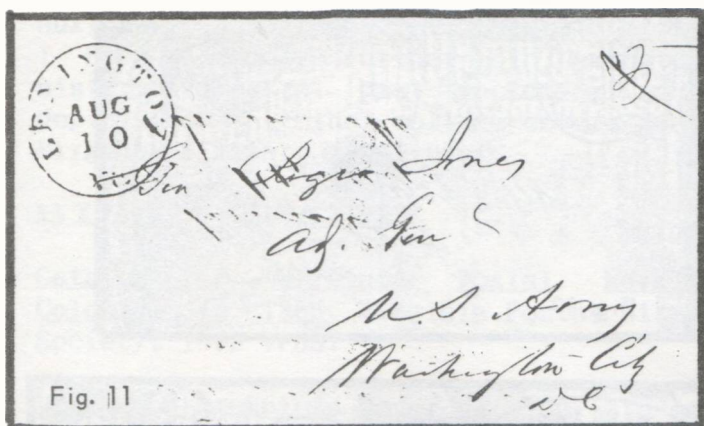 LEXINGTON
AUG
10
Gen Roger Jones
Adj. Gen
U. S. Army
Washington City
D C
Fig. 11